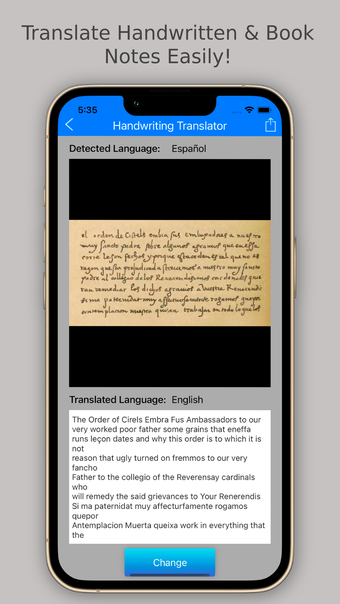 Translate Handwritten & Book
Notes Easily!
5:35
Handwriting Translator
Detected Language: Español
el orden de Cistels embia sus embaxadores a nuestro
muy sancto padre sobre algunos agrauios que en essa
corte le son fechos y porque
a nuestro muy sancto
padre al collegio de los Reverendissimos cardenales que
ran remediar los dichos agrauios a Vuestra Reverendis
sima paternidat muy affectuosamente rogamos quepor
contemplacion nuestra quiera trabajar en todo lo que los
Translated Language: English
The Order of Cirels Embra Fus Ambassadors to our
very worked poor father some grains that eneffa
runs leçon dates and why this order is to which it is
not
reason that ugly turned on fremmos to our very
fancho
Father to the collegio of the Reverensay cardinals
who
will remedy the said grievances to Your Renerendis
Si ma paternidat muy affecturfamente rogamos
quepor
Antemplacion Muerta queixa work in everything that
the
Change